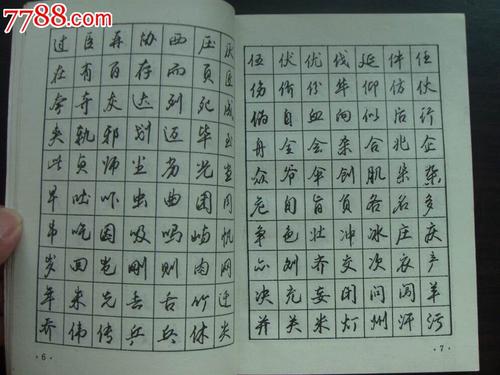 7788.com
过 臣 再 协 西 压 厌
在 有 百 存 而 页 匠
夸 夺 灰 达 列 死 成
夹 轨 邪 划 迈 毕 至
此 贞 师 尘 劣 光 当
早 吐 吓 虫 曲 团 同
吊 吃 因 吸 吗 屿 帆
岁 回 岂 刚 则 肉 网
年 朱 先 丢 舌 竹 迁
乔 伟 传 乒 乓 休
·6·
伍 伏 优 伐 延 件 任
伤 价 份 华 仰 仿 伙
伪 自 血 向 似 后 行
舟 全 会 杀 合 兆 企
众 爷 伞 创 肌 朵 杂
危 旬 旨 负 各 名 多
争 色 壮 冲 冰 庄 庆
亦 刘 齐 交 次 衣 产
决 充 妄 闭 问 闯 羊
并 关 米 灯 州 汗 污
·7·